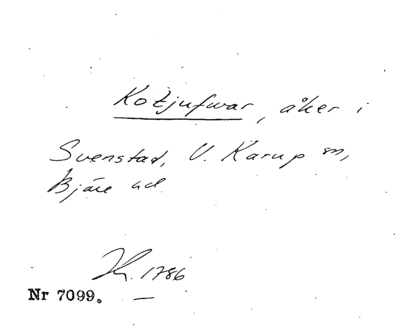 Kotjufvar, åker i
Svenstad, V. Karup sn,
Bjäre hd.
1786
Nr 7099.